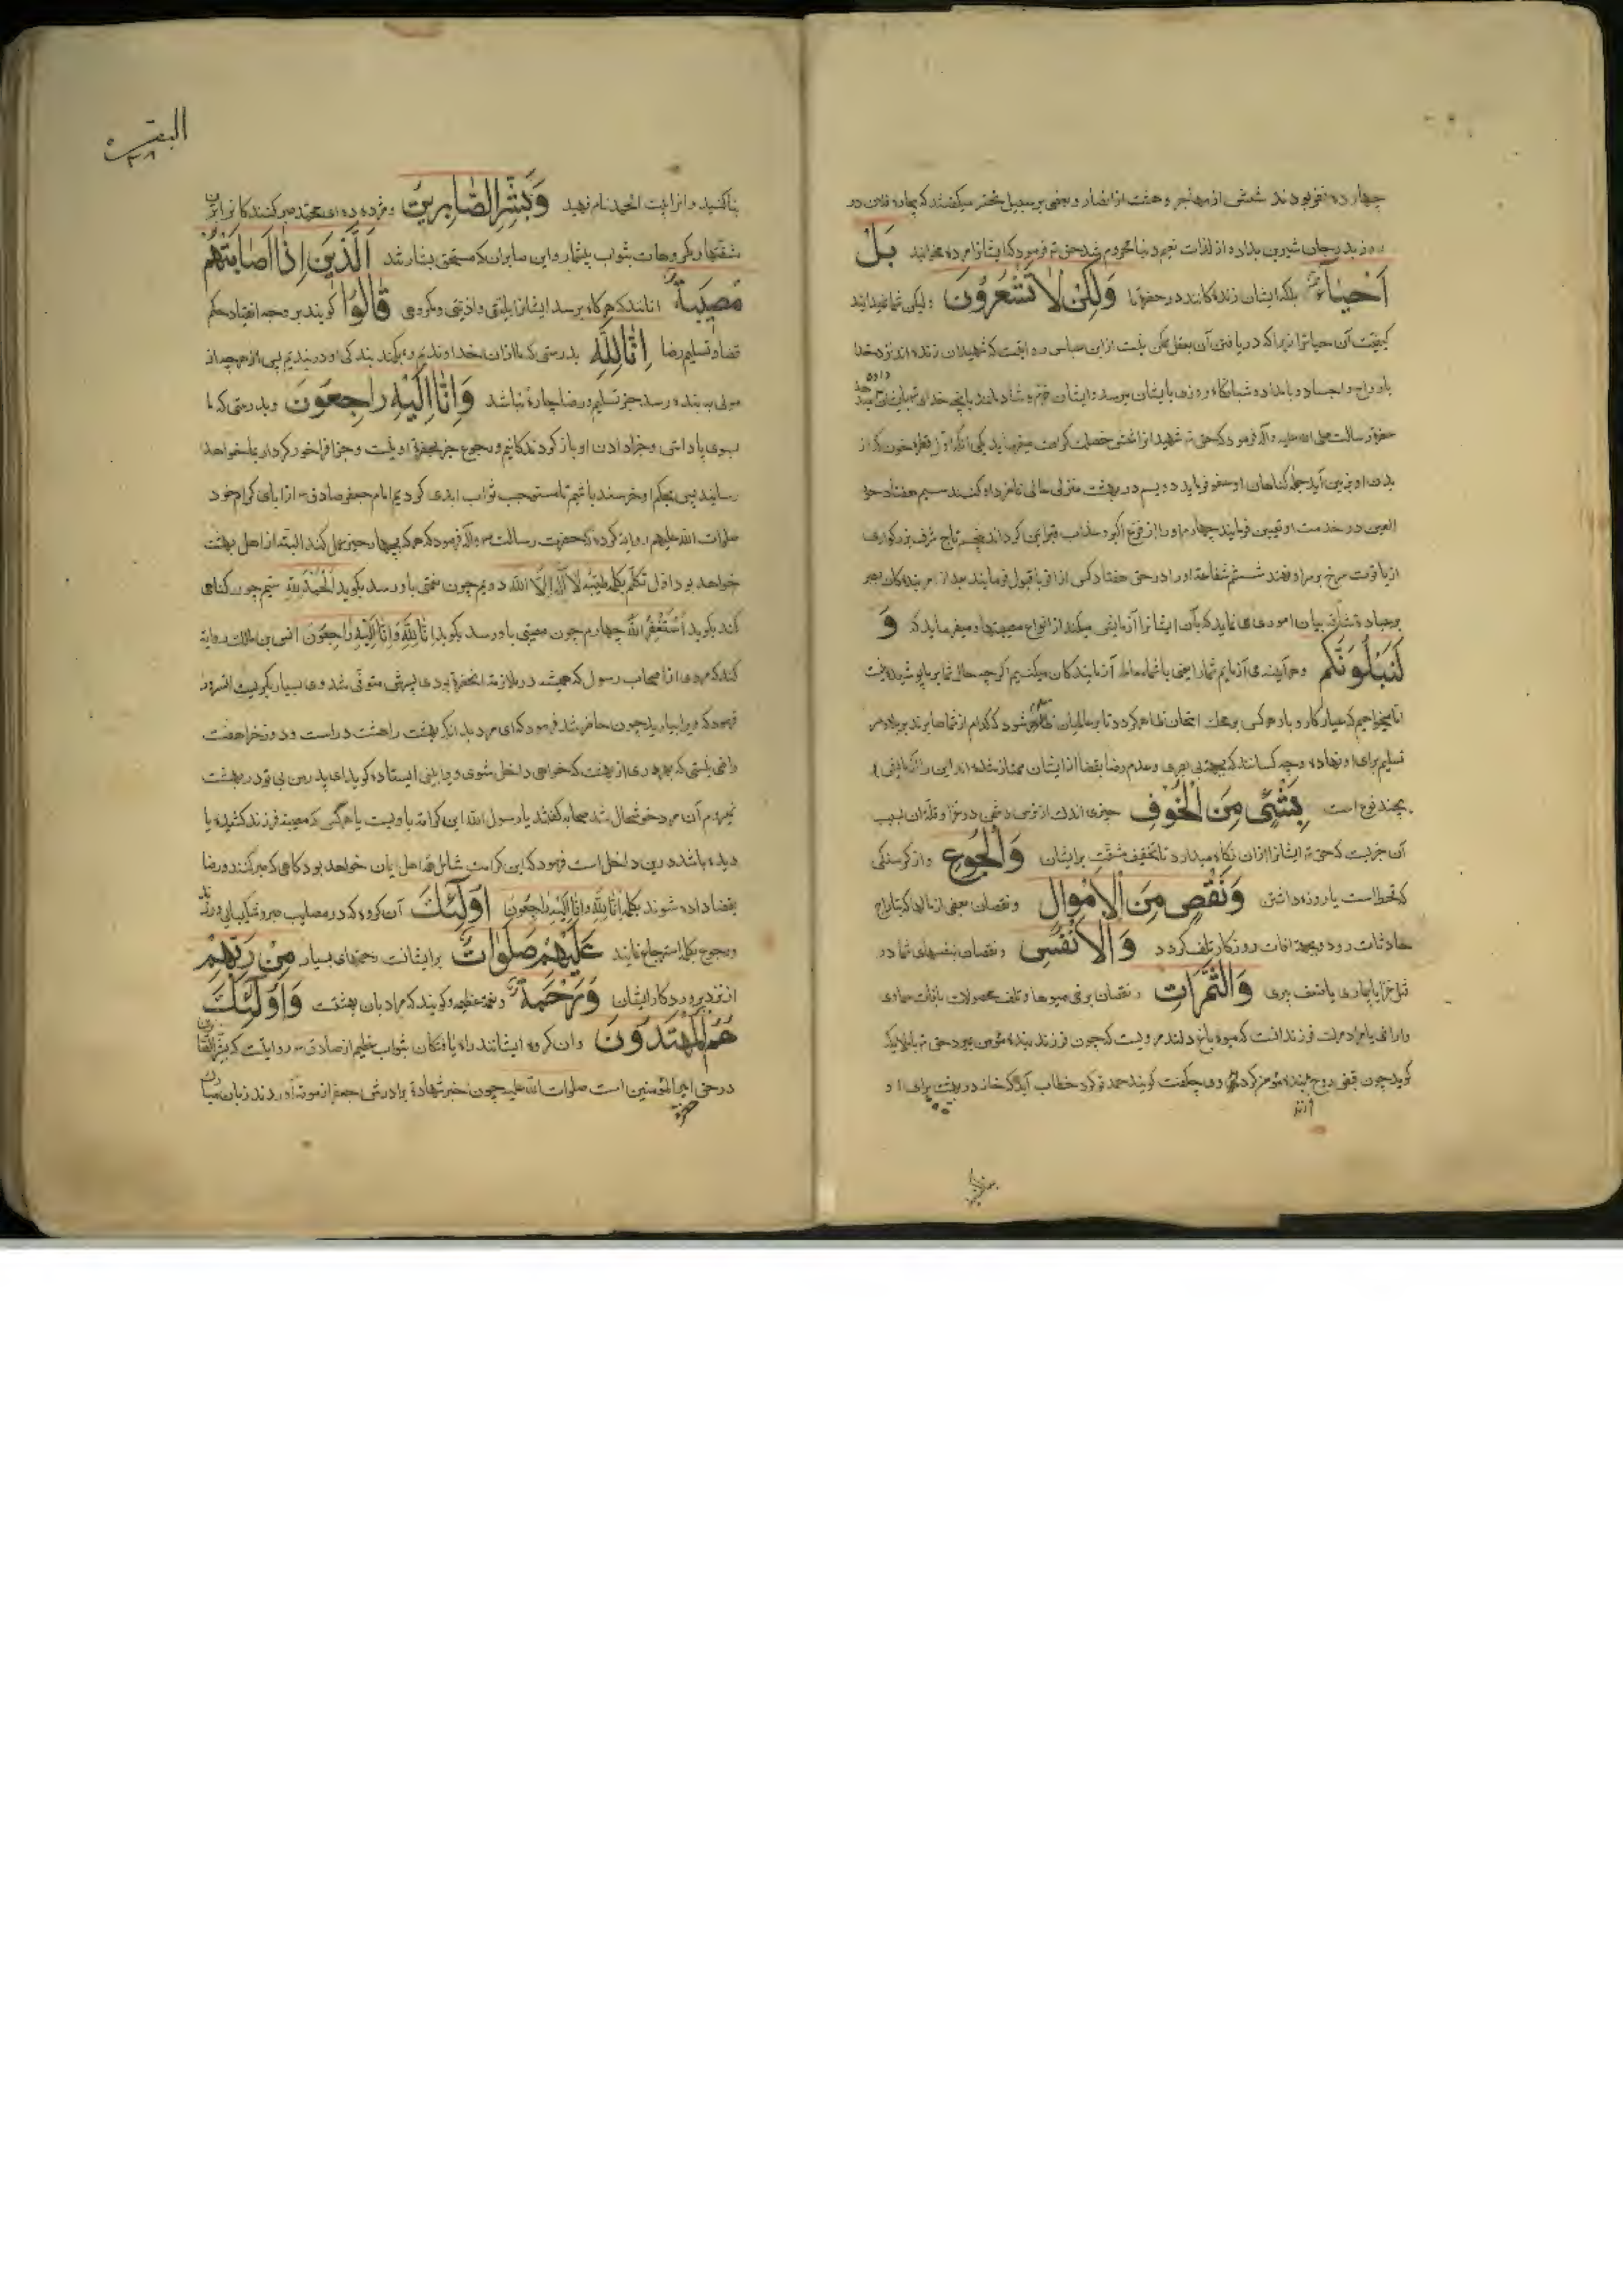 چهارده نفر بودند شش از مهاجر و هفت از انصار و بعضی بر سبیل تحسر میگفتند که بیچاره فلان در
روز بدر جان شیرین بداد و از لذات نعیم دنیا محروم شد حق تع فرمود که ایشانرا مرده مخوانید بَلْ
اَحْیَاءٌ بلکه ایشان زندگانند در حضرت ما وَلٰكِنْ لَا تَشْعُرُونَ ولیکن شما نمیدانید
کیفیت آن حیاترا زیرا که دریافتن آن بعقل ممکن نیست از ابن عباس روایتست که شهیدان زنده‌اند نزد خدا
بارواح و اجساد و بامداد و شبانگاه روزی بایشان میرسد و ایشان خرم و شادمانند بآنچه خدای تع بایشان داده
حضرت رسالت صلی الله علیه وآله فرمود که حق تع شهید را شش خصلت کرامت میفرماید یکی آنکه اول قطره خون که از
بدن او بزمین آید جمله گناهان او عفو فرماید دویم در بهشت منزلی عالی نامزد او کنند سیم هفتاد حور
العین در خدمت او تعیین فرمایند چهارم او را از فزع اکبر و عذاب قبر ایمن گردانند پنجم تاج شرف بزرگواری
از یاقوت سرخ بر سر او نهند ششم شفاعة او را در حق هفتاد کس از اقربا قبول فرمایند بعد از امر بندگان بصبر
بیان اموری می نماید که بآن ایشانرا آزمایش میکند از انواع مصیبتها و میفرماید که وَ
لَنَبْلُوَنَّكُمْ و هر آینه می آزمایم شما را یعنی با شما معامله آزمایندگان میکنیم اگر چه حال شما بر ما پوشیده نیست
اما میخواهیم که عیار کار و بار هر کس بر محک امتحان ظاهر گردد تا بر عالمیان ظاهر شود که کدام از شماها برند بر بلا و سر
تسلیم برای او نهاده و چه کسانند که بجهة بی صبری و عدم رضا بقضا از ایشان ممتاز شده‌اند این را آزمایش
بچند نوع است بِشَیْءٍ مِنَ الْخَوْفِ چیزی اندک از ترس دشمن در غزا و قلة آن بسبب
آن چیزیست که حق تع ایشانرا از آن نگاه میدارد تا تخفیف مشقت بر ایشان وَالْجُوعِ و از گرسنگی
که قحط است یا روزه داشتن وَنَقْصٍ مِنَ الْاَمْوَالِ و نقصان بعضی از مالها که بتاراج
حادثات رود و بجهة آفات روزگار تلف گردد وَالْاَنْفُسِ و نقصان نفسهای شما در
قتل غزا یا بیماری یا ضعف پیری وَالثَّمَرَاتِ و نقصان برخی میوها و تلف محصولات بآفات سماوی
و ارضی یا مراد مرگ فرزند انست که میوه باغ دلند مرویست که چون فرزند بنده مؤمن بمیرد حق تع با ملایکه
گوید چون قبض روح فرزند بنده مؤمن کردید وی چه گفت گویند حمد تو کرد خطاب آید که خانه در بهشت برای او
البقره
بنا کنید و آنرا بیت الحمد نام نهید وَبَشِّرِ الصَّابِرِینَ و مژده ده ای محمد صبر کنندگانرا برین
مشقتها و مکروهات بثواب بیشمار و این صابران که مستحق بشارتند اَلَّذِینَ اِذَا اَصَابَتْهُمْ
مُصِیبَةٌ آنانند که هرگاه برسد ایشانرا بلائی و اذیتی و مکروهی قَالُوا گویند بر وجه انقیاد حکم
قضا و تسلیم رضا اِنَّا لِلّٰهِ بدرستی که ما از آن خداوندیم و بکمند بندگی او در بندیم پس از هر چه از
مولی به بنده رسد جز تسلیم و رضا چاره نباشد وَاِنَّا اِلَیْهِ رَاجِعُونَ و بدرستی که ما
بسوی پاداش و جزا دادن او باز گردندگانیم و رجوع جز بحضرة او نیست و جزا فراخور کردار بما خواهد
رسانید پس بحکم او خرسند باشیم تا مستوجب ثواب ابدی گردیم امام جعفر صادق ع از آبای کرام خود
صلوات الله علیهم روایة کرده که حضرت رسالت ص وآله فرمود که هر که بچهار چیز عمل کند البته از اهل بهشت
خواهد بود اول تکلم بکلمه طیبه لَا اِلٰهَ اِلَّا الله دویم چون نعمتی باو رسد بگوید اَلْحَمْدُ لِلّٰهِ سیم چون گناهی
کند بگوید اَسْتَغْفِرُ اللهَ چهارم چون مصیبتی باو رسد بگوید اِنَّا لِلّٰهِ وَاِنَّا اِلَیْهِ رَاجِعُونَ انس بن مالک روایة
کند که مردی از اصحاب رسول که همیشه در ملازمة آنحضرة بودی پسرش متوفی شد وی بسیار بگریست آنسرور
فرمود که ویرا بیارید چون حاضر شد فرمود که ای مرد بدانکه بهشت را هشت در است و دوزخ را هفت
راضی نیستی که بهر دری از بهشت که خواهی داخل شوی ویرا بینی ایستاده گوید ای پدر من بی تو در بهشت
نمیروم آن مرد خوشحال شد صحابه گفتند یا رسول الله این کرامة باویست یا هر کس که مصیبة فرزند کشیده یا
دیده باشد درین داخل است فرمود که این کرامت شامل همه اهل ایمان خواهد بود گاهی که صبر کنند و رضا
بقضا داده شوند بکلمه اِنَّا لِلّٰهِ وَاِنَّا اِلَیْهِ رَاجِعُونَ اُولٰئِكَ آن گروه که در مصایب صبر و شکیبائی ورزند
و رجوع بکلمه استرجاع نمایند عَلَیْهِمْ صَلَوَاتٌ بر ایشانست رحمتهای بسیار مِنْ رَبِّهِمْ
از نزد پروردگار ایشان وَرَحْمَةٌ و نعمة عظیمه و گویند که مراد بآن بهشتست وَاُولٰئِكَ
هُمُ الْمُهْتَدُونَ و آن گروه ایشانند راه یافتگان بثواب عظیم از صادق ع روایتست که بشر الصابرین
در حق امیر المؤمنین است صلوات الله علیه چون خبر شهادة برادرش جعفر از موته آوردند زبان مبارک